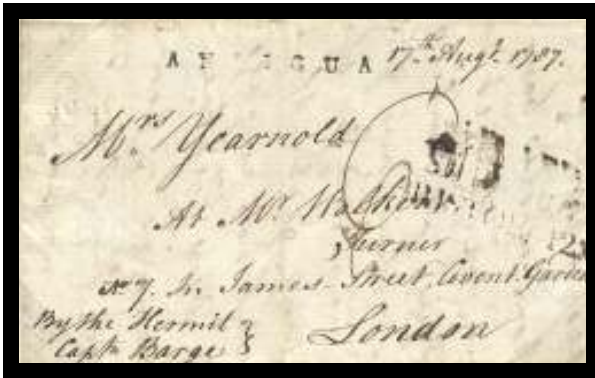 ANTIGUA 17th Augt. 1787.
Mrs Yearnold
At Mr.
Turner
No 7. In James Street, Covent Garden
By the Hermit
Captn Barge
London